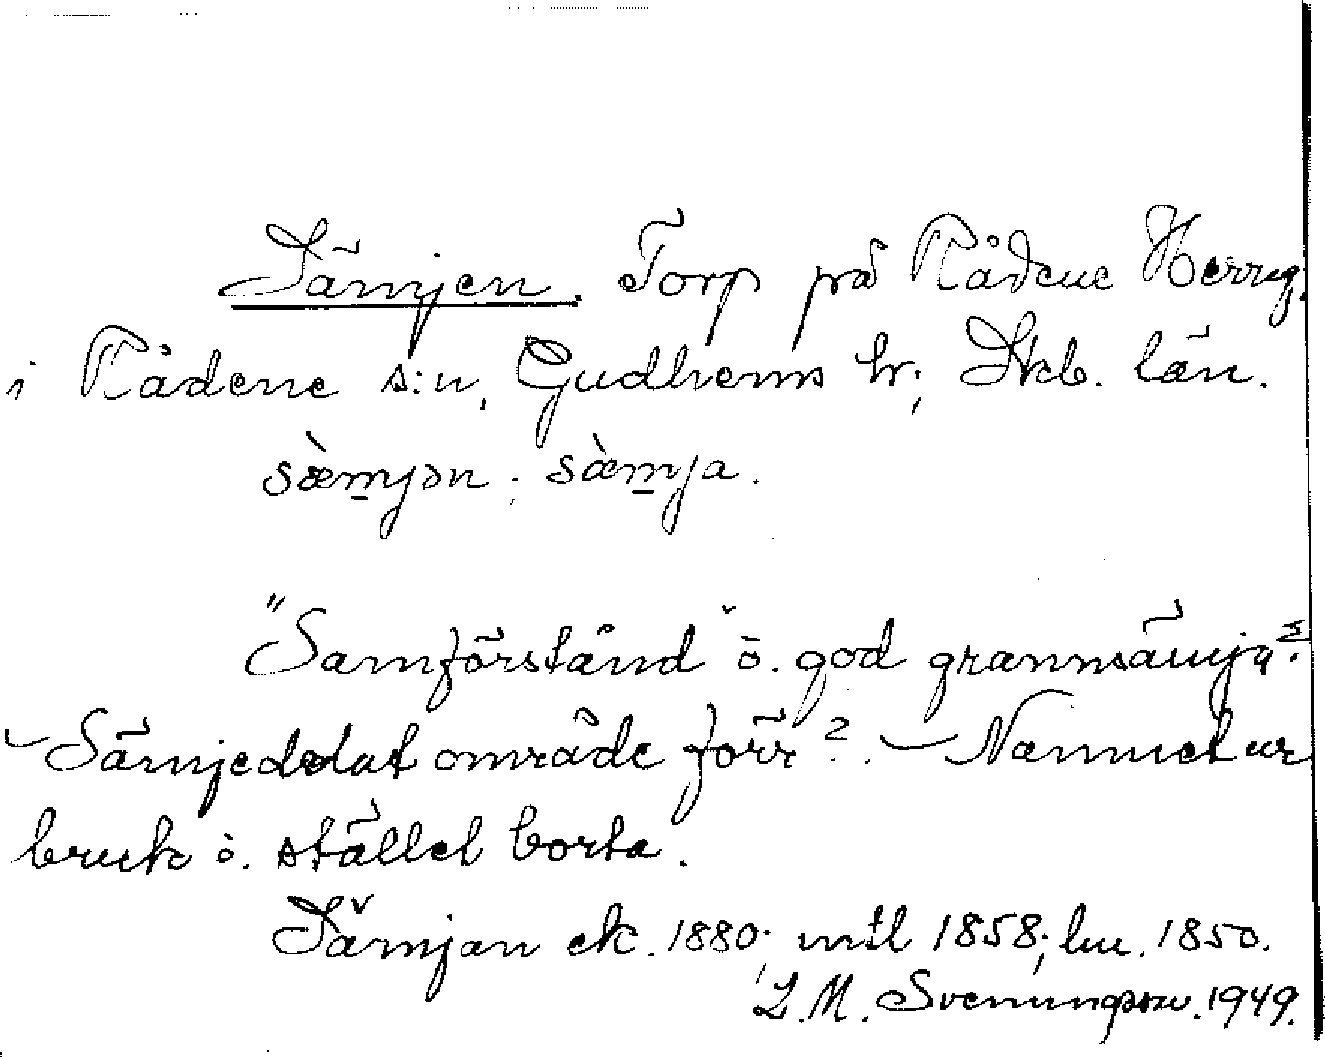 Sämjen. Torp på Rådene Herrg.
i Rådene s:n, Gudhems hr; Skb. län.
sæ̀mjən; sæ̀mja.
"Samförstånd" o. god grannsämja?
– Sämjedelat område förr? – Namnet ur
bruk o. stället borta.
Sämjan ek. 1880; mtl 1858; hu. 1850.
L. M. Svenungsson. 1949.